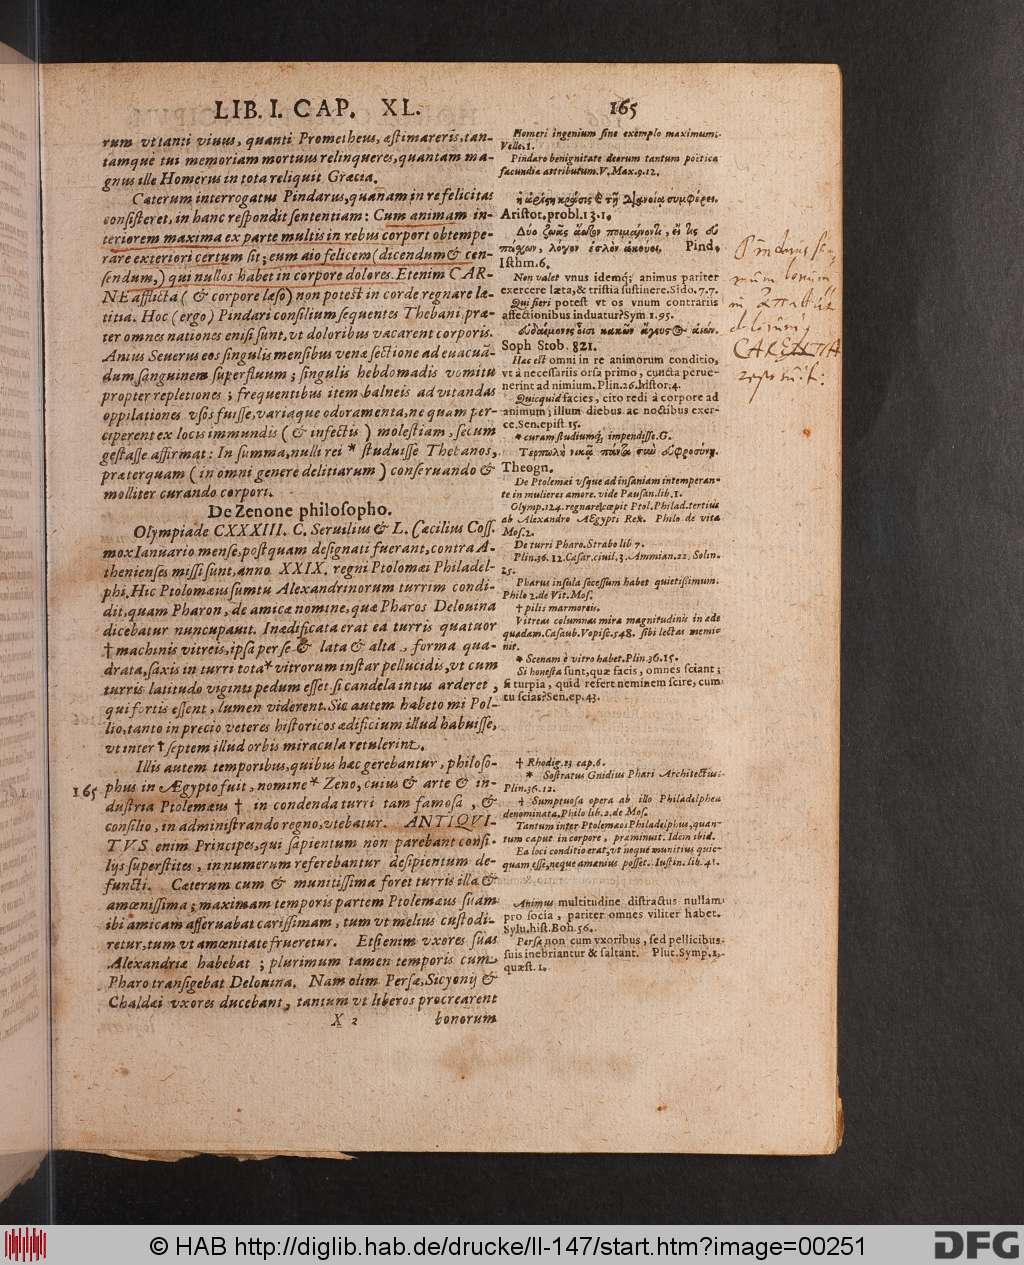 LIB. I. CAP. XL. 165
rum vt tanti viuus, quanti Prometheus, æstimareris, tan-
tamque tui memoriam mortuus relinqueres, quantam ma-
gnus ille Homerus in tota reliquit Græcia.
Cæterum interrogatus Pindarus, quanam in re felicitas
consisteret, in hanc respondit sententiam: Cum animam in-
teriorem maxima ex parte multis in rebus corport obtempe-
rare exteriori certum sit; eum aio felicem (dicendum & cen-
sendum,) qui nullos habet in corpore dolores. Etenim CAR-
NE afflicta (& corpore læso) non potest in corde regnare læ-
titia. Hoc (ergo) Pindari consilium sequentes Thebani, præ-
ter omnes nationes enisi sunt, vt doloribus vacarent corporis.
Anius Seuerus eos singulis mensibus venæ sectione ad euacuā-
dum sanguinem superfluum; singulis hebdomadis vomitu
propter repletiones; frequentibus item balneis ad vitandas
oppilationes vsos fuisse, variaque odoramenta, ne quam per-
ciperent ex locis immundis (& infectis) molestiam, secum
gestasse affirmat: In summa, nulli rei * studuisse Thebanos,
præterquam (in omni genere delitiarum) conseruando &
molliter curando corport.
De Zenone philosopho.
Olympiade CXXXIII. C. Seruilius & L. Cæcilius Coss.
mox Ianuario mense, postquam designati fuerant, contra A-
thenienses missi sunt, anno XXIX. regni Ptolomæi Philadel-
phi. Hic Ptolomæus sumtu Alexandrinorum turrim condi-
dit, quam Pharon, de amicæ nomine, quæ Pharos Delouina
dicebatur nuncupauit. Inædificata erat ea turris quatuor
† machinis vitreis, ipsa per se & lata & alta, forma qua-
drata, saxis in turri tota * vitrorum instar pellucidis, vt cum
turris latitudo viginti pedum esset si candela intus arderet,
qui fortis essent, lumen viderent. Sic autem habeto mi Pol-
lio, tanto in precio veteres historicos ædificium illud habuisse,
vt inter † septem illud orbis miracula retulerint.
Illis autem temporibus, quibus hæc gerebantur, philoso-
165 phus in Ægypto fuit, nomine * Zeno, cuius & arte & in-
dustria Ptolemæus † in condenda turri tam famosa, &
consilio, in administrando regno, vtebatur. ANTIQVI-
TVS enim Principes, qui sapientum non parebant consi-
lijs superstites, in numerum referebantur desipientum de-
functi. Cæterum cum & munitissima foret turris illa &
amœnissima; maximam temporis partem Ptolemæus suam
ibi amicam asseruabat carissimam, tum vt melius custodi-
retur, tum vt amœnitate frueretur. Etsi enim vxores suas
Alexandriæ habebat; plurimum tamen temporis cum
Pharo transigebat Delouina. Nam olim Persæ, Sicyonij &
Chaldæi vxores ducebant, tantum vt liberos procrearent
X 2 bonorum
Homeri ingenium sine exemplo maximum.
Velle. 1.
Pindaro benignitate deorum tantum poëtica
facundia attributum. V. Max. 9. 12.
Aristot. probl. 13. 1.
Pind.
Isthm. 6.
Non valet vnus idemq; animus pariter
exercere læta, & tristia sustinere. Sido. 7. 7.
Qui fieri potest vt os vnum contrariis
affectionibus induatur? Sym 1. 95.
Soph Stob. 821.
Hac est omni in re animorum conditio,
vt à necessariis orsa primo, cuncta perue-
nerint ad nimium. Plin. 26. histor. 4.
Quicquid facies, cito redi à corpore ad
animum; illum diebus ac noctibus exer-
ce. Sen. epist 15.
* curam studiumq; impendisse. G.
Theogn.
De Ptolemæi vsque ad insaniam intemperan-
te in mulieres amore. vide Pausan. lib. 1.
Olymp. 124. regnare cœpit Ptol. Philad. tertius
ab Alexandro Ægypti Rex. Philo de vita
Mos. 2.
De turri Pharo. Strabo lib 7.
Plin. 36. 12. Cæsar. ciuil. 3. Ammian. 22. Solin.
25.
Pharus insula secessum habet quietissimum.
Philo 2. de Vit. Mos.
† pilis marmoreis.
Vitreas columnas mira magnitudinis in æde
quadam. Casaub. Vopisc. 548. sibi lectas memi-
nit.
* Scenam è vitro habet. Plin. 36. 15.
Si honesta sunt, quæ facis, omnes sciant;
si turpia, quid refert neminem scire, cum
tu scias? Sen. ep. 43.
† Rhodig. 23 cap. 6.
* Sostratus Gnidius Phari Architectus.
Plin. 36. 12.
† Sumptuosa opera ab illo Philadelphea
denominata. Philo lib. 2. de Mos.
Tantum inter Ptolemæos Philadelphus, quan-
tum caput in corpore, præminuit. Idem ibid.
Ea loci conditio erat, vt neque munitius quic-
quam esse, neque amænius posset. Iustin. lib. 41.
Animus multitudine distractus nullam
pro socia, pariter omnes viliter habet.
Sylu. hist. Boh. 56.
Persæ non cum vxoribus, sed pellicibus
suis inebriantur & saltant. Plut. Symp. 1.
quæst. 1.
© HAB http://diglib.hab.de/drucke/ll-147/start.htm?image=00251
DFG